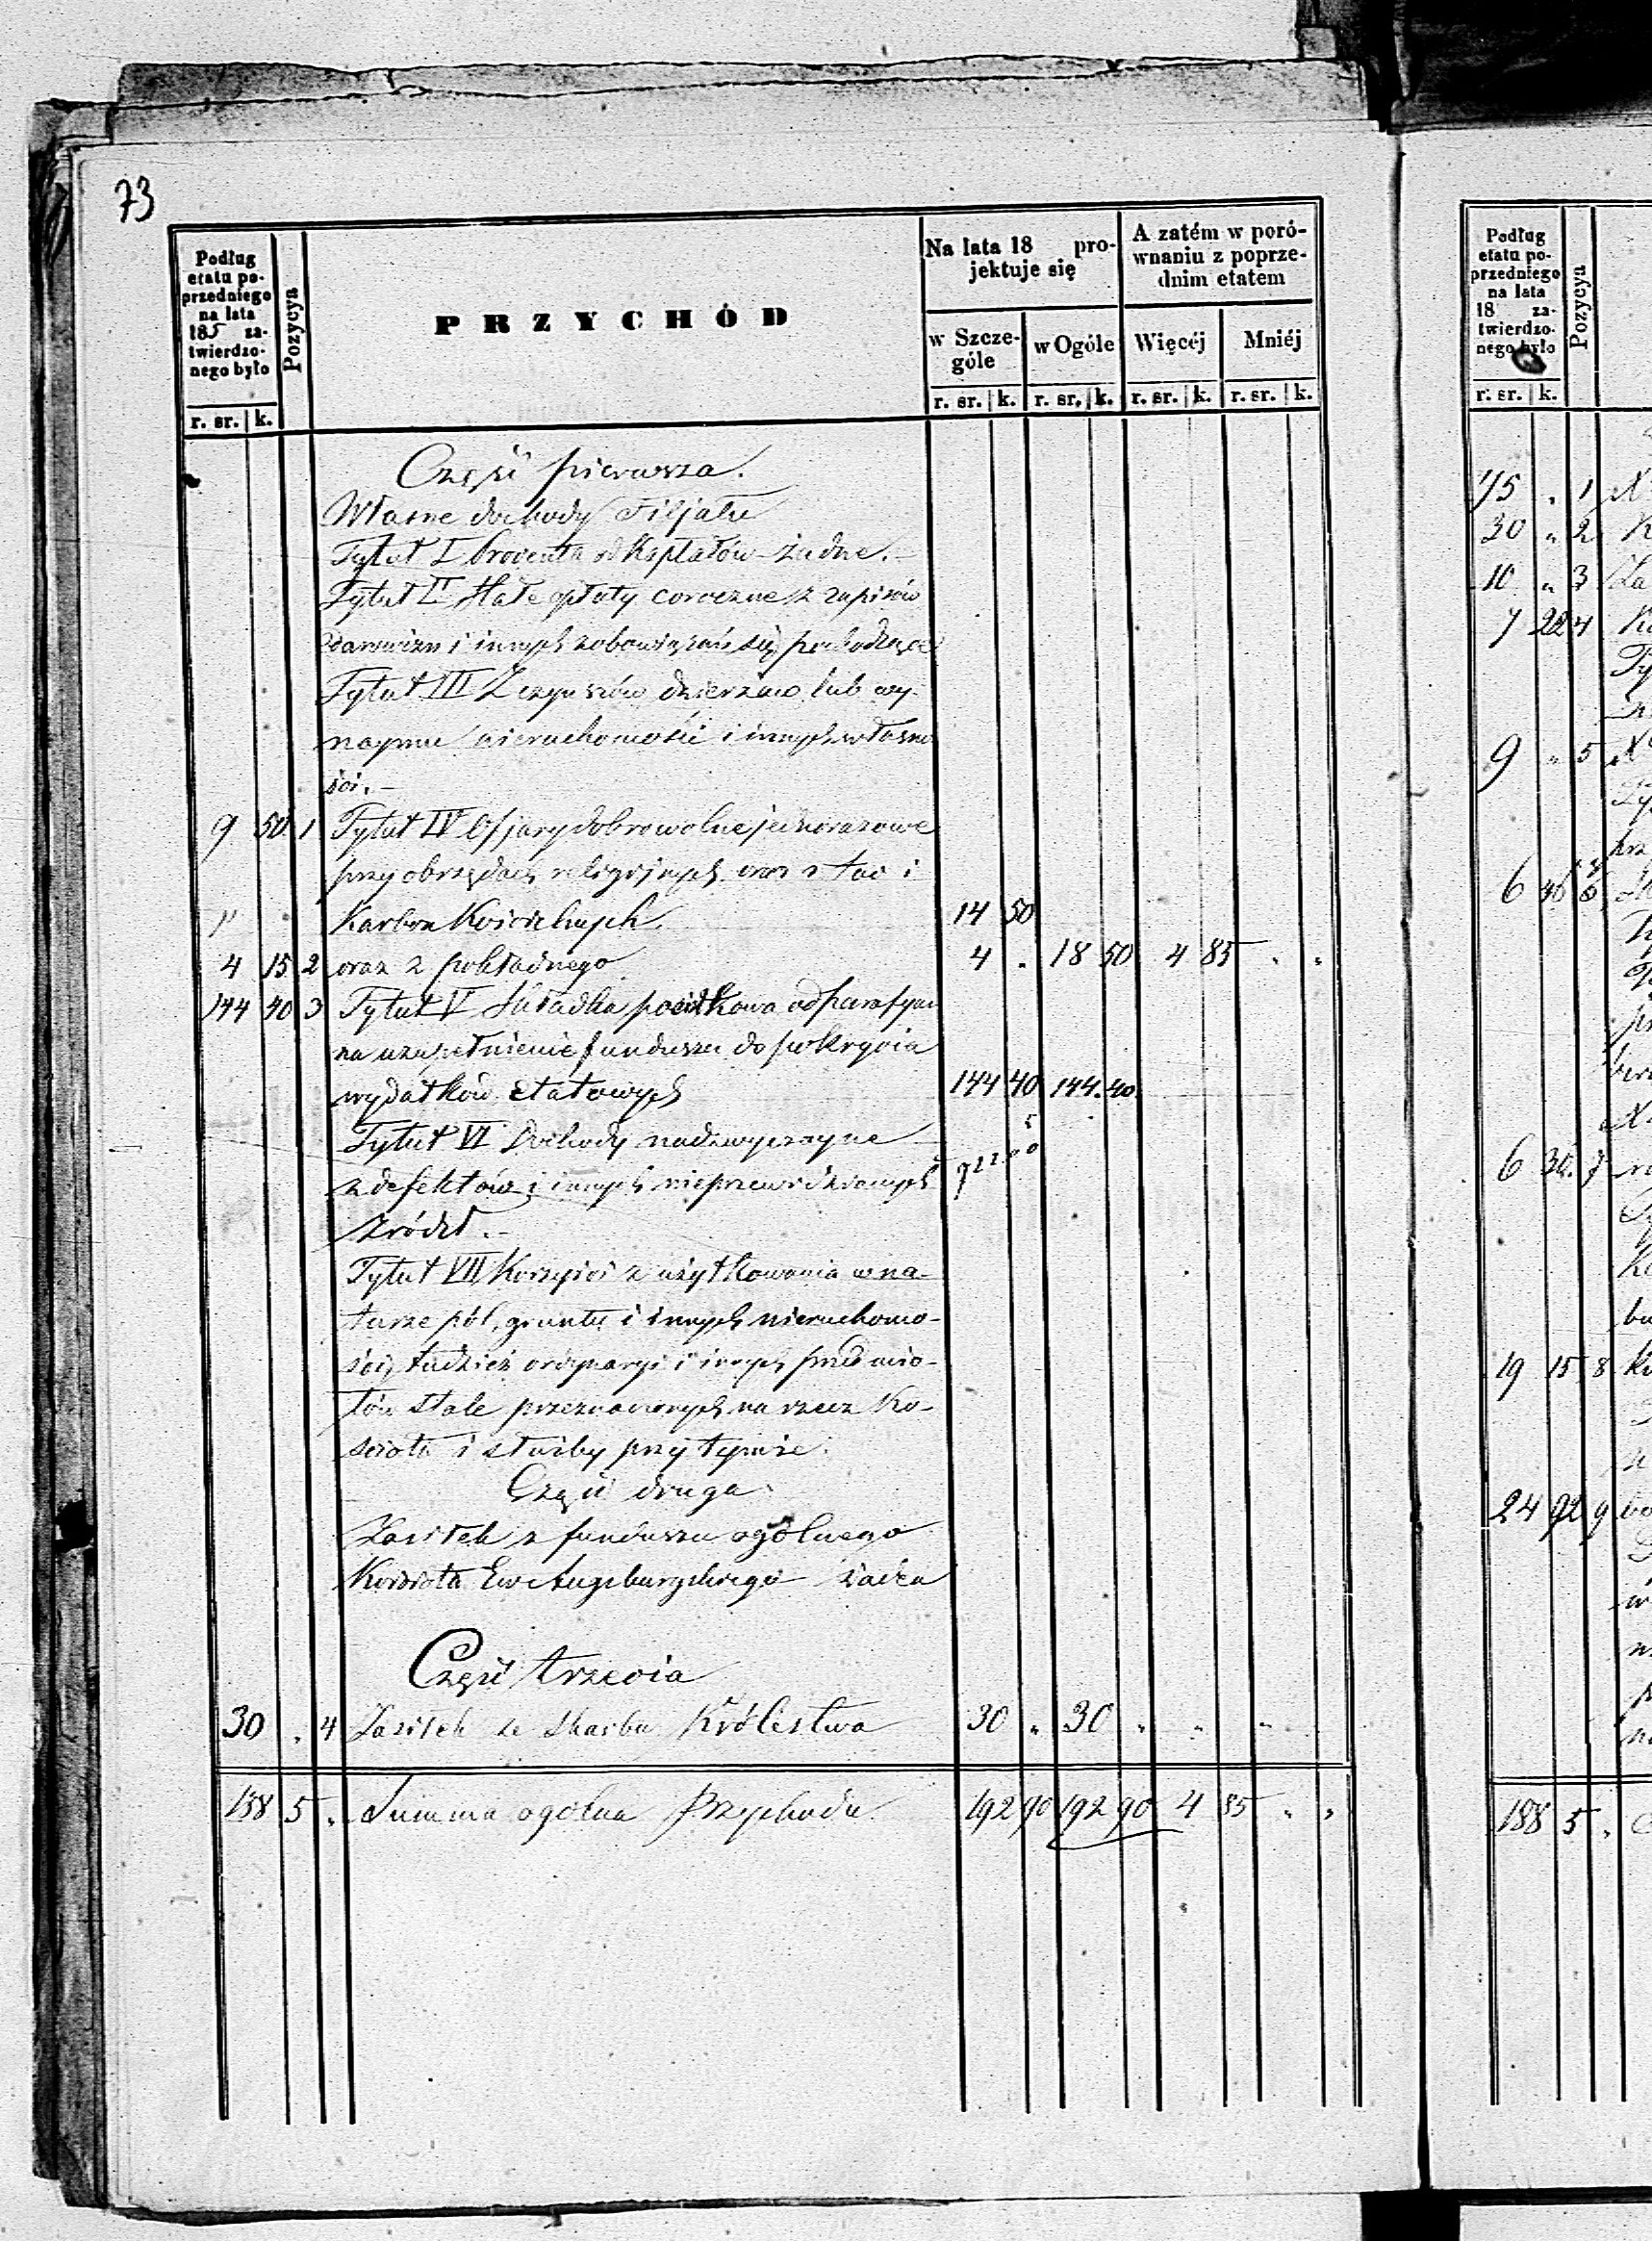 73
Podług etatu poprzedniego na lata 185 zatwierdzonego było
Pozycya
PRZYCHÓD
Na lata 18 projektuje się
A zatém w porównaniu z poprzednim etatem
w Szczególe
w Ogóle
Więcéj
Mniéj
r. sr. k. r. sr. k. r. sr. k. r. sr. k.
r. sr. k.
Część pierwsza.
Własne dochody Filjału
Tytuł I Procenta od Kapitałów żadne.
Tytuł II Stałe opłaty coroczne z zapisów
darowizn i innych zobowiązań się pochodzące
Tytuł III Z czynszów dzierżaw lub wy-
najmu nieruchomości i innych własno
ści.
9 50 1 Tytuł IV Ofjary dobrowolne jednorazowe
przy obrzędach religijnych oraz z tac i
Karbon Kościelnych 14 50
4 15 2 oraz z pokładnego 4 " 18 50 4 85 " "
144 40 3 Tytuł V Składka posiłkowa od parafjan
na uzupełnienie funduszu do pokrycia
wydatków etatowych 144 40 144 40
Tytuł VI Dochody nadzwyczajne
z defektów i innych nieprzewidzianych
źródeł.
Tytuł VII Korzyści z użytkowania w na-
turze pól, gruntu i innych nieruchomo-
ści, tudzież ordynaryi i innych przedmio-
tów stale przeznaczonych na rzecz Ko-
ścioła i służby przy tymże.
Część druga
Zasiłek z funduszu ogólnego
Kościoła Ew Augsburgskiego
Część trzecia
30 " 4 Zasiłek ze Skarbu Królestwa 30 " 30 " " "
188 5 " Summa ogólna Przychodu 192 90 192 90 4 85 " "
Podług etatu poprzedniego na lata 18 zatwierdzonego było
Pozycya
r. sr. k.
75 " 1
30 " 2
10 " 3
7 22 4
9 " 5
6
6 30 7
19 15 8
24 92 9
188 5 "